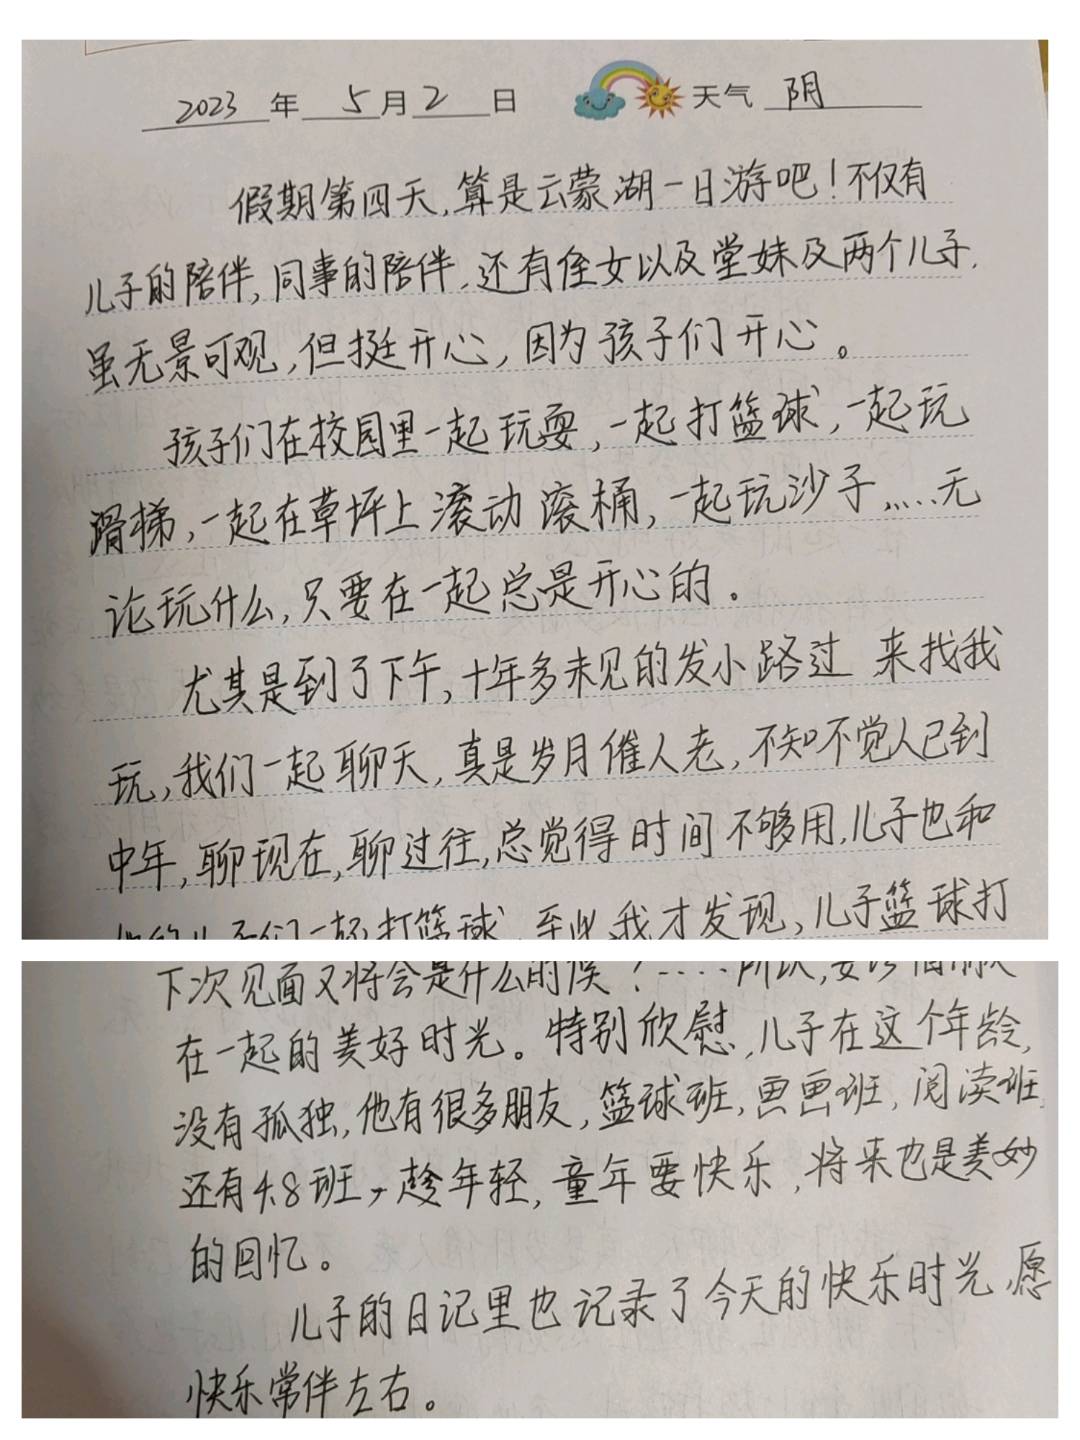 2023年5月2日 天气 阴
假期第四天,算是云蒙湖一日游吧!不仅有
儿子的陪伴,同事的陪伴,还有侄女以及堂妹及两个儿子,
虽无景可观,但挺开心,因为孩子们开心。
孩子们在校园里一起玩耍,一起打篮球,一起玩
滑梯,一起在草坪上滚动滚桶,一起玩沙子……无
论玩什么,只要在一起总是开心的。
尤其是到了下午,十年多未见的发小路过来找我
玩,我们一起聊天,真是岁月催人老,不知不觉人已到
中年,聊现在,聊过往,总觉得时间不够用,儿子也和
儿子们一起打篮球,至此,我才发现,儿子篮球打
下次见面又将会是什么时候?……所以,要
在一起的美好时光。特别欣慰,儿子在这个年龄,
没有孤独,他有很多朋友,篮球班,画画班,阅读班,
还有4.8班,趁年轻,童年要快乐,将来也是美妙
的回忆。
儿子的日记里也记录了今天的快乐时光,愿
快乐常伴左右。